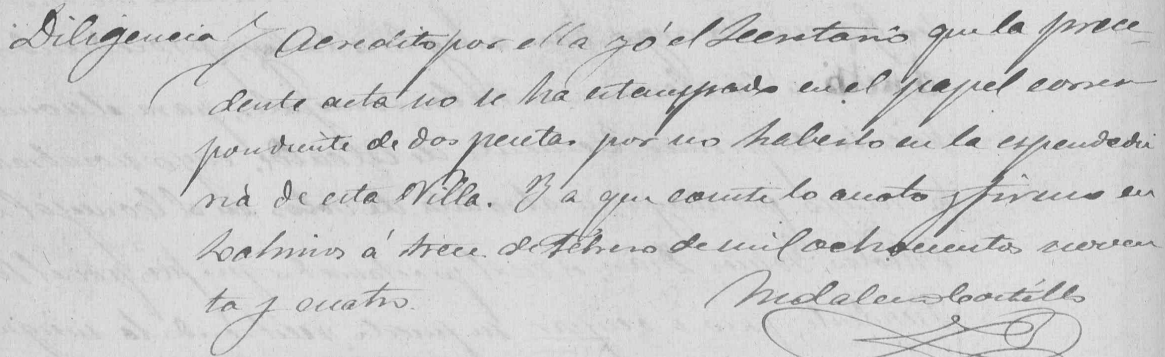 Diligencia / Acredito por ella yó el Secretario que la prece-
dente acta no se ha estampado en el papel corres
pondiente de dos pesetas por no haberlo en la espendedu
ria de esta Villa. Y a que conste lo anoto y firmo en
á trece de Febrero de mil ochocientos noven
ta y cuatro. Castillo